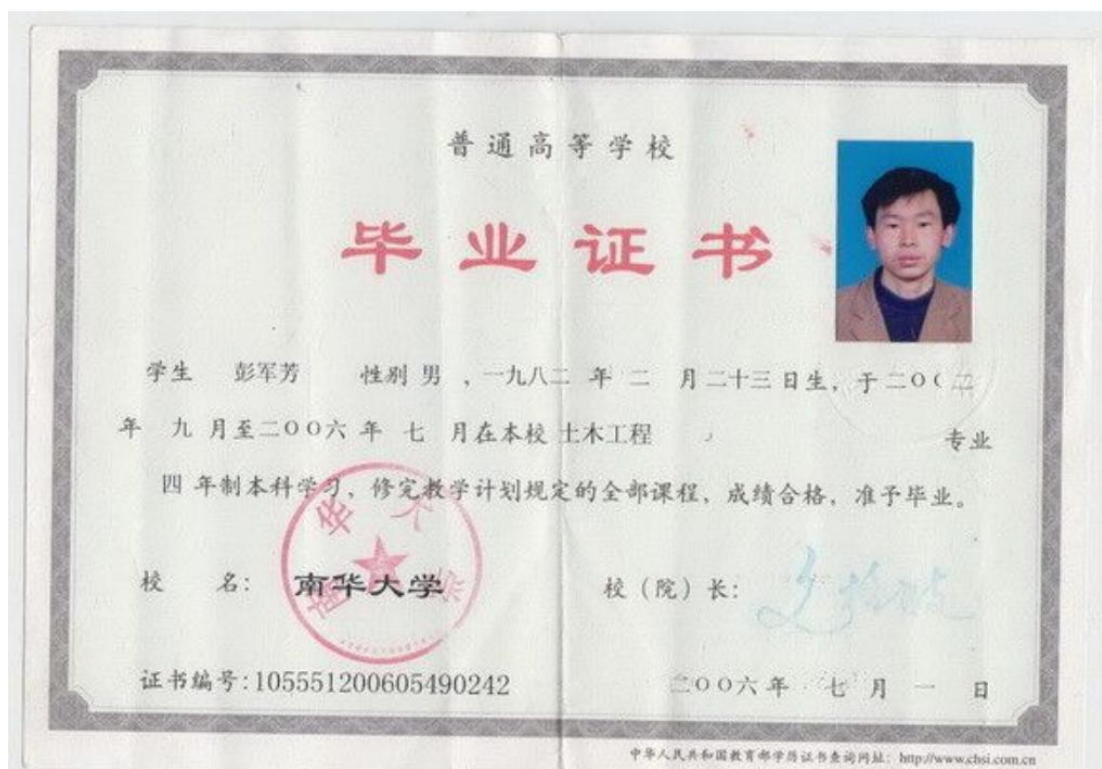 普通高等学校
毕业证书
学生 彭军芳 性别 男 ，一九八二 年 二 月 二十三 日生，于 二〇〇二
年 九 月至 二〇〇六 年 七 月在本校 土木工程 专业
四 年制本科学习，修完教学计划规定的全部课程，成绩合格，准予毕业。
南华大学
校 名： 南华大学 校（院）长：
证书编号:105551200605490242 二〇〇六 年 七 月 一 日
中华人民共和国教育部学历证书查询网址：http://www.chsi.com.cn